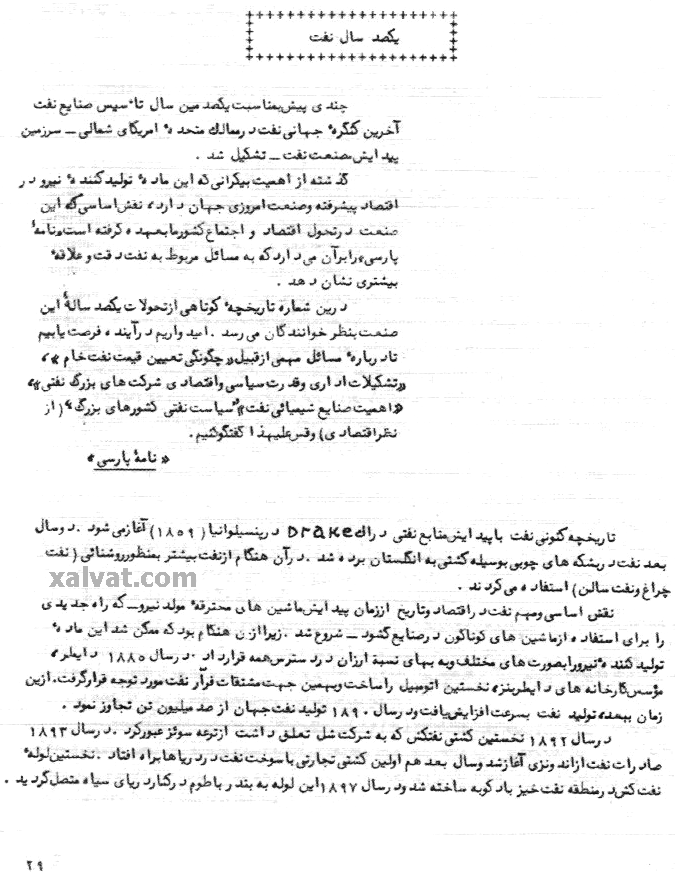 یکصد سال نفت
چندی پیش بمناسبت یکصدمین سال تأسیس صنایع نفت
آخرین کنگرهٔ جهانی نفت در ممالك متحدهٔ امریکای شمالی ــ سرزمین
پیدایش صنعت نفت ــ تشکیل شد .
گذشته از اهمیت بیکرانی که این مادهٔ تولید کنندهٔ نیرو در
اقتصاد پیشرفته وصنعت امروزی جهان دارد، نقش اساسی که این
صنعت درتحول اقتصاد و اجتماع کشورما بعهده گرفته است «نامهٔ
پارسی» را برآن می دارد که به مسائل مربوط به نفت دقت و علاقهٔ
بیشتری نشان دهد .
درین شماره تاریخچهٔ کوتاهی ازتحولات یکصد سالهٔ این
صنعت بنظر خوانندگان می رسد . امیدواریم درآینده، فرصت یابیم
تادربارهٔ مسائل مهمی ازقبیل «چگونگی تعیین قیمت نفت خام»،
«تشکیلات اداری وقدرت سیاسی واقتصادی شرکت های بزرگ نفتی»،
«اهمیت صنایع شیمیائی نفت»، «سیاست نفتی کشورهای بزرگ» (از
نظراقتصادی) وقس علیهذا گفتگو کنیم .
« نامهٔ پارسی »
تاریخچه کنونی نفت باپیدایش منابع نفتی در Draked درپنسیلوانیا (۱۸۵۹) آغازمی شود . دوسال
بعد نفت در بشکه های چوبی بوسیله کشتی به انگلستان برده شد . درآن هنگام ازنفت بیشتر بمنظورروشنائی (نفت
xalvat.com
چراغ ونفت سالن) استفاده می کردند .
نقش اساسی ومهم نفت دراقتصاد وتاریخ اززمان پیدایش ماشین های محترقهٔ مولد نیرو ــ که راه جدیدی
را برای استفاده ازماشین های گوناگون درصنایع گشود ــ شروع شد . زیرا ازین هنگام بود که ممکن شد این مادهٔ
تولید کنندهٔ نیرو را بصورت های مختلف وبه بهای نسبة ارزان دردسترس همه قرار داد . درسال ۱۸۸۵ دایملر،
مؤسس کارخانه های دایملربنز، نخستین اتومبیل را ساخت وبهمین جهت مشتقات فرآر نفت مورد توجه قرارگرفت. ازین
زمان ببعد، تولید نفت بسرعت افزایش یافت ودرسال ۱۸۹۰ تولید نفت جهان از صد میلیون تن تجاوز نمود .
درسال ۱۸۹۲ نخستین کشتی نفتکش که به شرکت شل تعلق داشت ازترعه سوئز عبورکرد . درسال ۱۸۹۳
صادرات نفت ازاند ونزی آغازشد وسال بعد هم اولین کشتی تجارتی باسوخت نفت دردریاها براه افتاد . نخستین لولهٔ
نفت کش درمنطقه نفت خیز بادکوبه ساخته شد ودرسال ۱۸۹۷ این لوله به بندر باطوم درکنار دریای سیاه متصل گردید .
۲۹